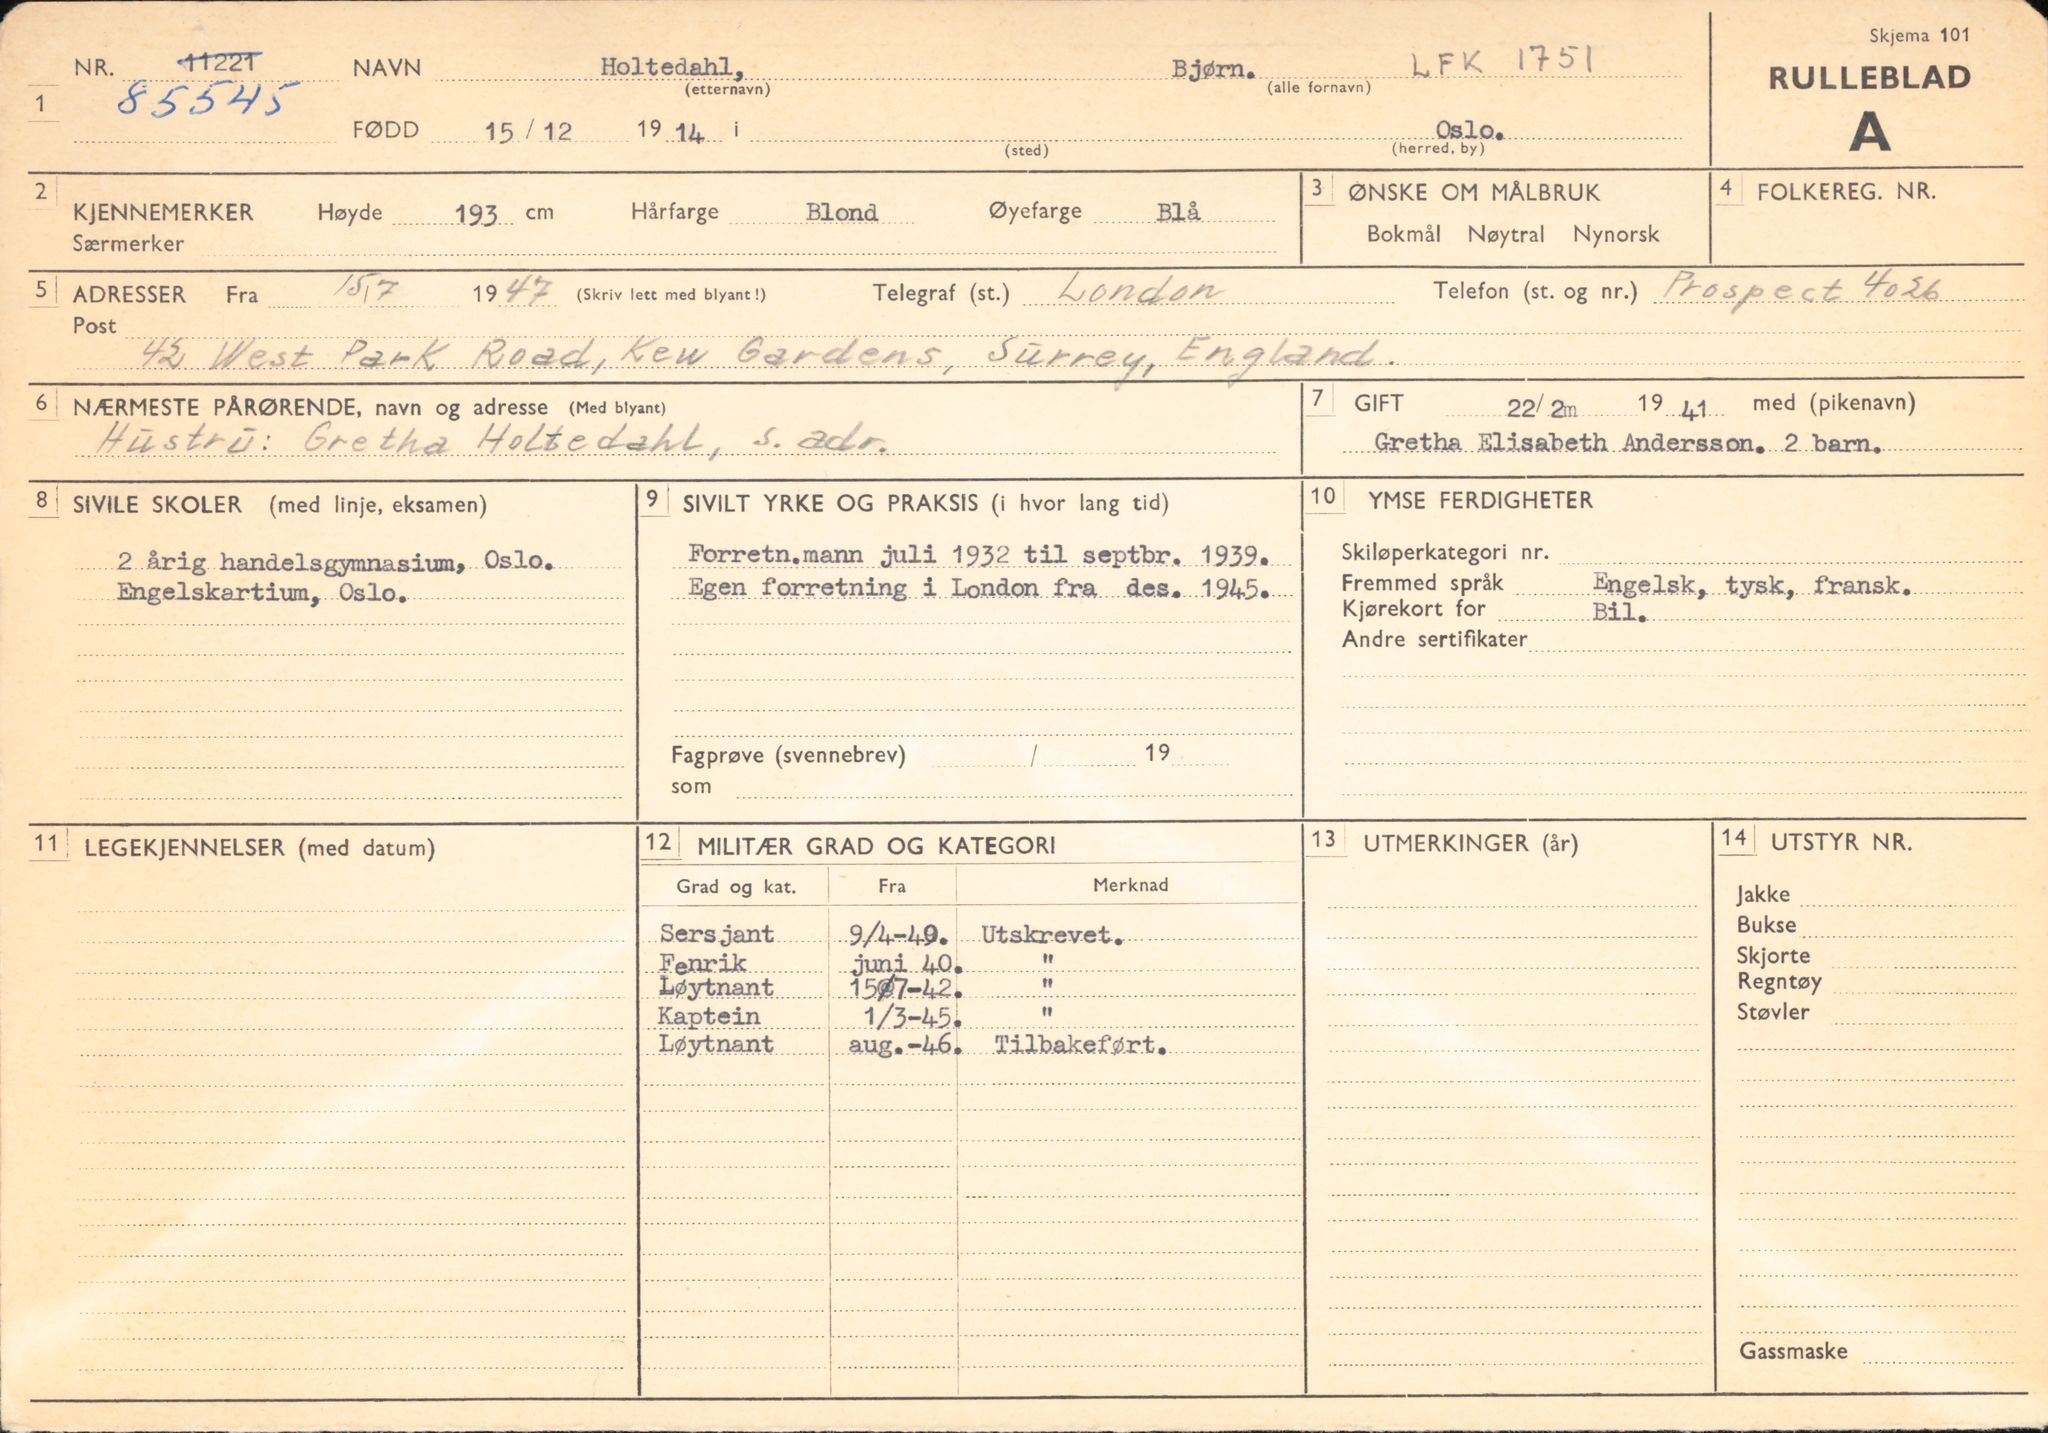 Skjema 101
RULLEBLAD
A
1 NR. 11221 NAVN Holtedahl, Bjørn. LFK 1751
(etternavn) (alle fornavn)
85545
FØDD 15/12 1914 i Oslo.
(sted) (herred, by)
2 KJENNEMERKER Høyde 193 cm Hårfarge Blond Øyefarge Blå
Særmerker
3 ØNSKE OM MÅLBRUK
Bokmål Nøytral Nynorsk
4 FOLKEREG. NR.
5 ADRESSER Fra 15/7 1947 (Skriv lett med blyant!) Telegraf (st.) London Telefon (st. og nr.) Prospect 4026
Post
42 West Park Road, Kew Gardens, Surrey, England.
6 NÆRMESTE PÅRØRENDE, navn og adresse (Med blyant)
Hustru: Gretha Holtedahl, s. adr.
7 GIFT 22/2m 1941 med (pikenavn)
Gretha Elisabeth Andersson. 2 barn.
8 SIVILE SKOLER (med linje, eksamen)
2 årig handelsgymnasium, Oslo.
Engelskartium, Oslo.
9 SIVILT YRKE OG PRAKSIS (i hvor lang tid)
Forretn.mann juli 1932 til septbr. 1939.
Egen forretning i London fra des. 1945.
Fagprøve (svennebrev) / 19
som
10 YMSE FERDIGHETER
Skiløperkategori nr.
Fremmed språk Engelsk, tysk, fransk.
Kjørekort for Bil.
Andre sertifikater
11 LEGEKJENNELSER (med datum)
12 MILITÆR GRAD OG KATEGORI
Grad og kat. Fra Merknad
Sersjant 9/4-40. Utskrevet.
Fenrik juni 40. "
Løytnant 15/7-42. "
Kaptein 1/3-45. "
Løytnant aug.-46. Tilbakeført.
13 UTMERKINGER (år)
14 UTSTYR NR.
Jakke
Bukse
Skjorte
Regntøy
Støvler
Gassmaske